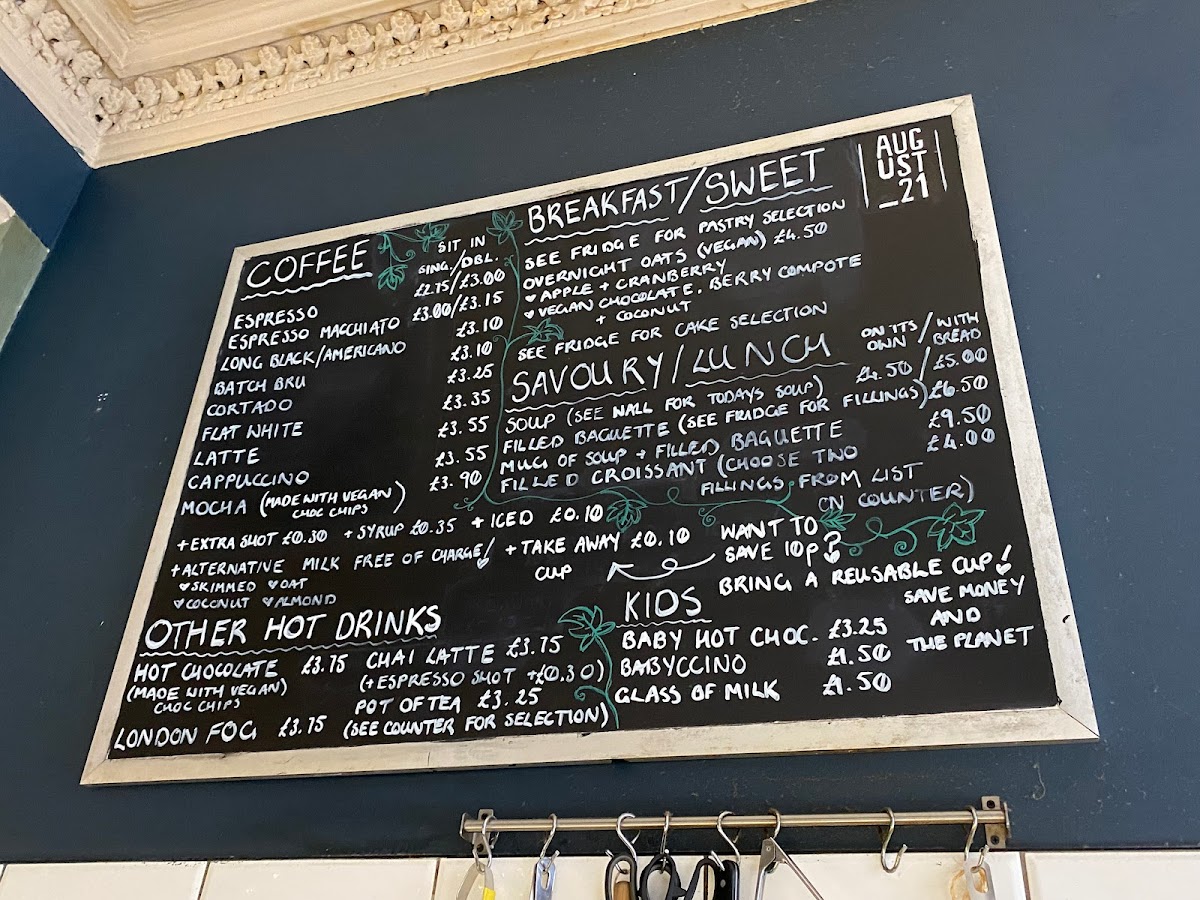 COFFEE
SIT IN
SING./DBL.
ESPRESSO £2.75/£3.00
ESPRESSO MACCHIATO £3.00/£3.15
LONG BLACK/AMERICANO £3.10
BATCH BRU £3.10
CORTADO £3.25
FLAT WHITE £3.35
LATTE £3.55
CAPPUCCINO £3.55
MOCHA (MADE WITH VEGAN £3.90
CHOC CHIPS)
+ EXTRA SHOT £0.30 + SYRUP £0.35 + ICED £0.10
+ ALTERNATIVE MILK FREE OF CHARGE!
♥ SKIMMED ♥ OAT
♥ COCONUT ♥ ALMOND
+ TAKE AWAY £0.10
CUP
WANT TO
SAVE 10p?
BRING A REUSABLE CUP!
SAVE MONEY
AND
THE PLANET
OTHER HOT DRINKS
HOT CHOCOLATE £3.75
(MADE WITH VEGAN)
CHOC CHIPS
LONDON FOG £3.75
CHAI LATTE £3.75
(+ESPRESSO SHOT +£0.30)
POT OF TEA £3.25
(SEE COUNTER FOR SELECTION)
BREAKFAST/SWEET
AUG
UST
_21
SEE FRIDGE FOR PASTRY SELECTION
OVERNIGHT OATS (VEGAN) £4.50
♥ APPLE + CRANBERRY
♥ VEGAN CHOCOLATE, BERRY COMPOTE
+ COCONUT
SEE FRIDGE FOR CAKE SELECTION
SAVOURY/LUNCH
ON ITS / WITH
OWN / BREAD
SOUP (SEE WALL FOR TODAYS SOUP) £4.50/£5.00
FILLED BAGUETTE (SEE FRIDGE FOR FILLINGS) £6.50
MUG OF SOUP + FILLED BAGUETTE £9.50
FILLED CROISSANT (CHOOSE TWO £4.00
FILLINGS FROM LIST
ON COUNTER)
KIDS
BABY HOT CHOC. £3.25
BABYCCINO £1.50
GLASS OF MILK £1.50